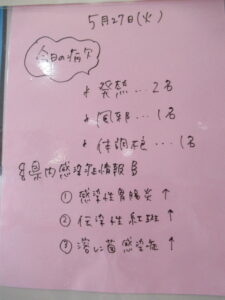 5月27日(火)
今日の病欠
* 発熱…2名
* 風邪…1名
* 体調不良…1名
県内感染症情報
① 感染性胃腸炎↑
② 伝染性紅斑↑
③ 溶レン菌感染症↑